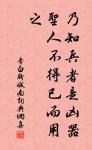 乃知兵者是凶器
聖人不得已而用
之
李白戰城南詞典網集